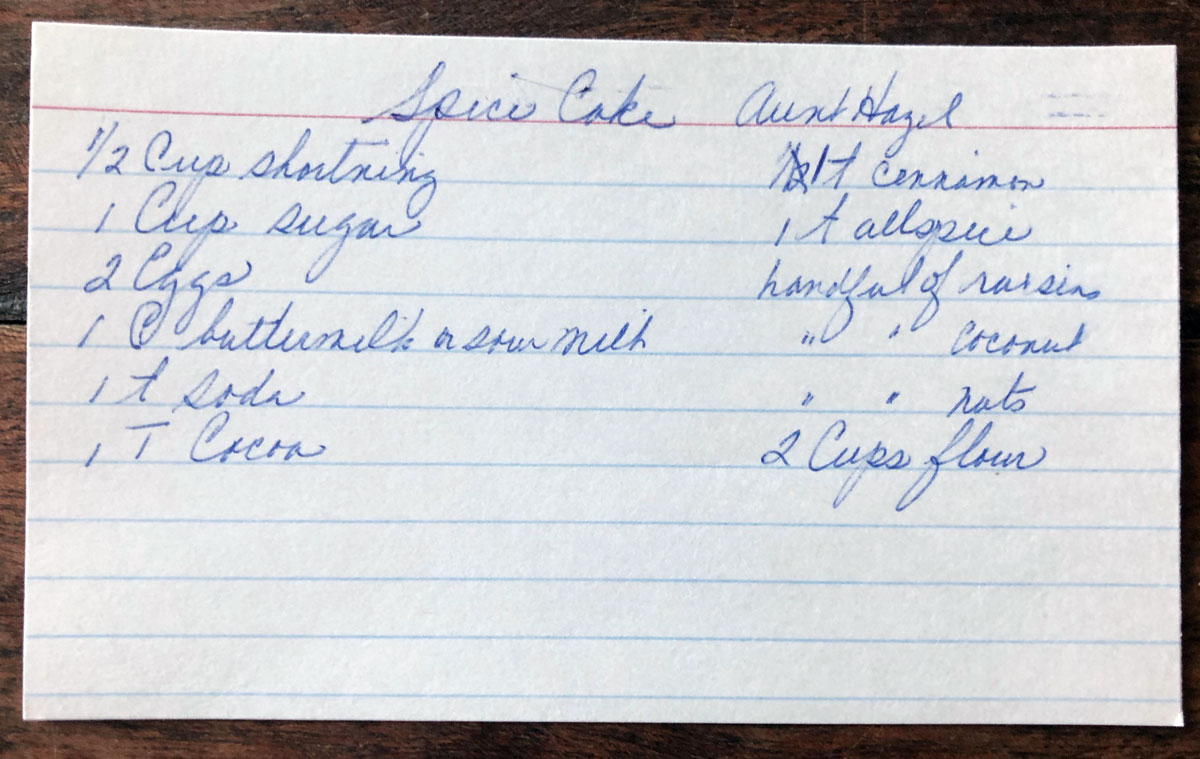 Spice Cake Aunt Hazel
1/2 Cup shortning
1 Cup sugar
2 Eggs
1 C buttermilk or sour milk
1 t soda
1 T Cocoa
1 t cennamon
1 t allspice
handful of raisins
" " coconut
" " nuts
2 Cups flour